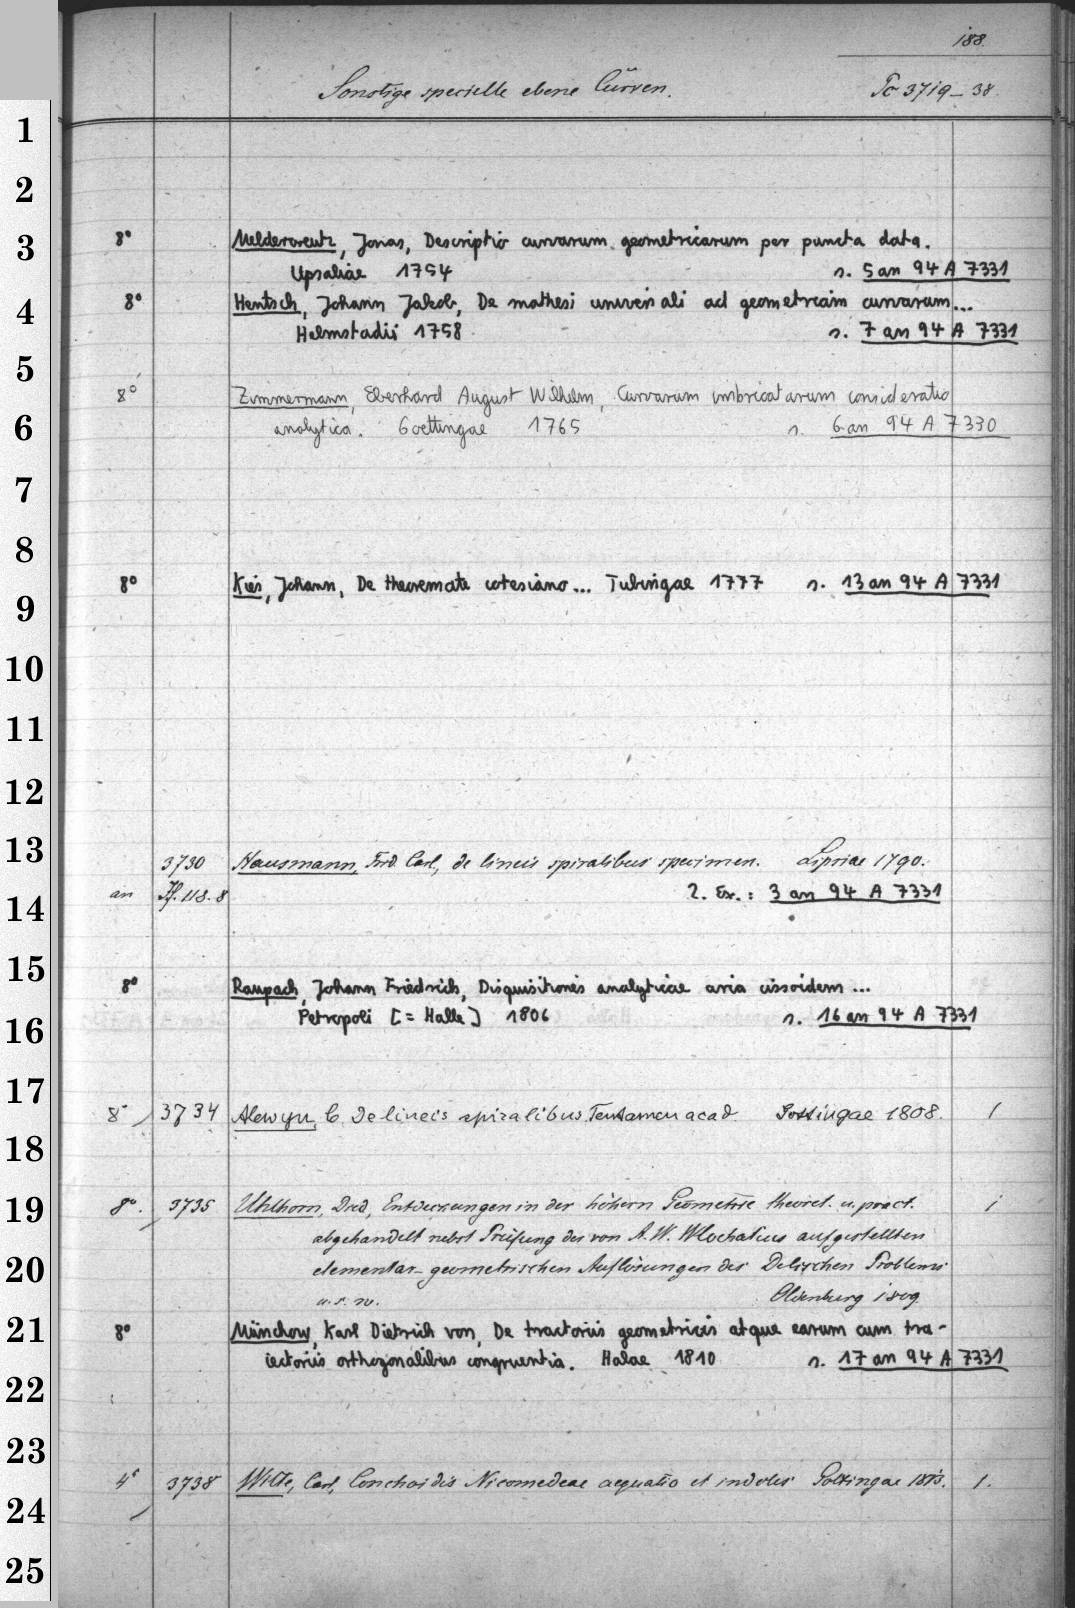 188.
Sonstige specielle ebene Curven. Tc 3719-38
8° Meldercreutz, Jonas, Descriptio curvarum geometricarum per puncta data.
Upsaliae 1754 s. 5 an 94 A 7331
8° Hentsch, Johann Jakob, De mathesi universali ad geometriam curvarum...
Helmstadii 1758 s. 7 an 94 A 7331
8° Zimmermann, Eberhard August Wilhelm, Curvarum imbricatarum consideratio
analytica. Goettingae 1765 s. 6 an 94 A 7330
8° Kies, Johann, De theoremate cotesiano... Tubingae 1777 s. 13 an 94 A 7331
3730 Hausmann, Frd. Carl, de lineis spiralibus specimen. Lipsiae 1790.
an 118.8 2. Ex.: 3 an 94 A 7331
8° Raupach, Johann Friedrich, Disquisitiones analyticae circa cissoidem...
Petropoli [= Halle] 1806 s. 16 an 94 A 7331
8° 3734 Alewyn, C. De lineis spiralibus. Tentamen acad. Gottingae 1808. 1
8°. 3735 Uhlhorn, Dred, Entdeckungen in der höhern Geometrie theoret. u. pract. 1
abgehandelt nebst Prüfung der von A. W. Wlochatius aufgestellten
elementar-geometrischen Auflösungen des Delischen Problems
u. s. w. Oldenburg 1809
8° Münchow, Karl Dietrich von, De tractoriis geometricis atque earum cum tra-
iectoriis orthogonalibus congruentia. Halae 1810 s. 17 an 94 A 7331
4° 3738 Witte, Carl, Conchoidis Nicomedeae aequatio et indoles Gottingae 1813. 1.
1
2
3
4
5
6
7
8
9
10
11
12
13
14
15
16
17
18
19
20
21
22
23
24
25